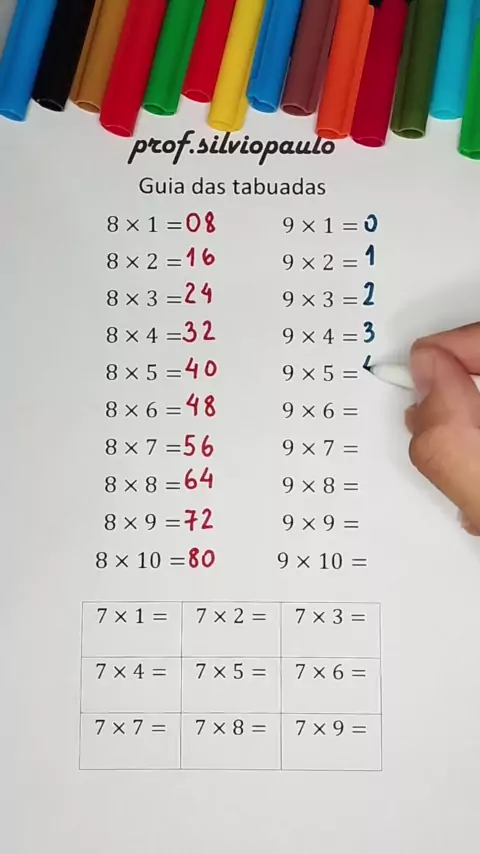 prof.silviopaulo
Guia das tabuadas
8 × 1 = 08
8 × 2 = 16
8 × 3 = 24
8 × 4 = 32
8 × 5 = 40
8 × 6 = 48
8 × 7 = 56
8 × 8 = 64
8 × 9 = 72
8 × 10 = 80
9 × 1 = 0
9 × 2 = 1
9 × 3 = 2
9 × 4 = 3
9 × 5 =
9 × 6 =
9 × 7 =
9 × 8 =
9 × 9 =
9 × 10 =
7 × 1 = 7 × 2 = 7 × 3 =
7 × 4 = 7 × 5 = 7 × 6 =
7 × 7 = 7 × 8 = 7 × 9 =